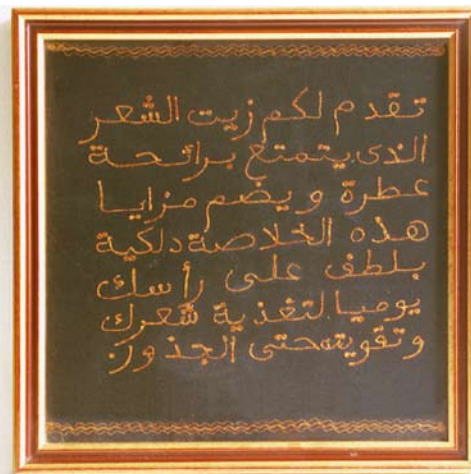 تقدم لكم زيت الشعر
الذى يتمتع برائحة
عطرة ويضم مزايا
هذه الخلاصة دلكية
بلطف على رأسك
يوميا لتغذية شعرك
وتقويته حتى الجذور.